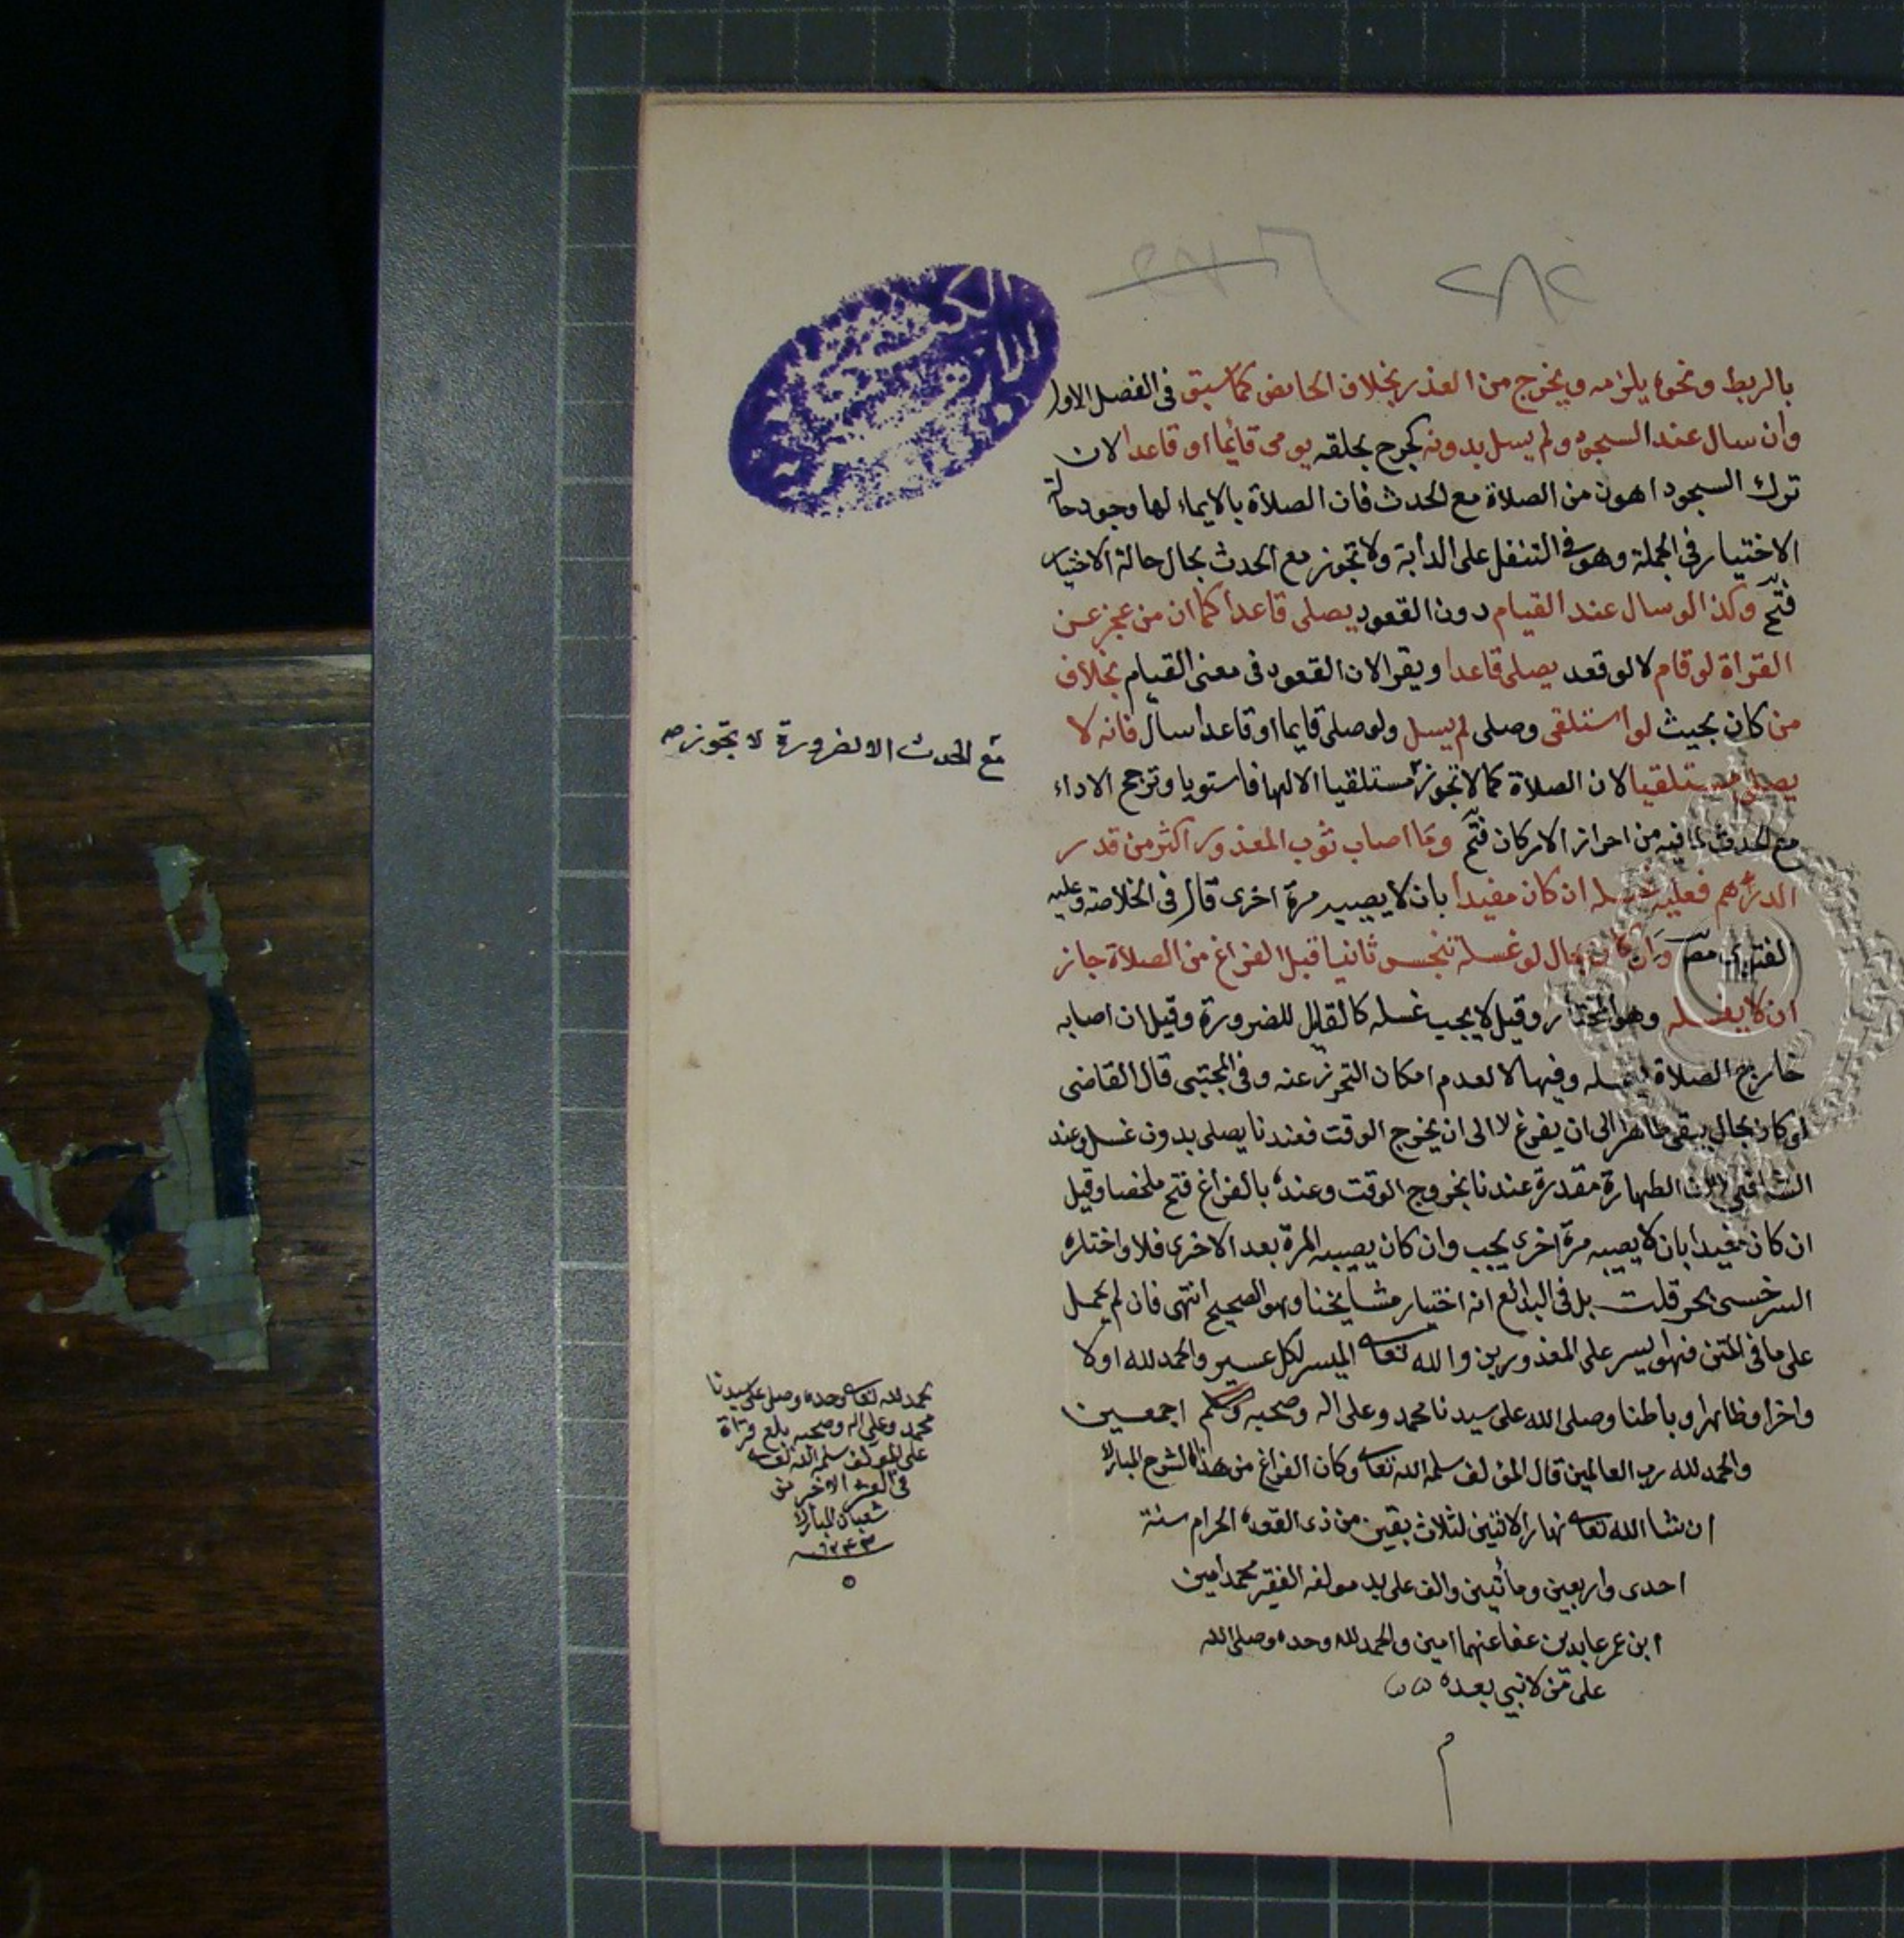 ٢٨٢
بالربط ونحوه يلزمه ويخرج من العذر بخلاف الحائض كما سبق فى الفصل الاول
وان سال عند السجود ولم يسل بدونه كجرح بحلقه يومى قائما او قاعدا لان
ترك السجود اهون من الصلاة مع الحدث فان الصلاة بالايماء لها وجود حالة
الاختيار فى الجملة وهو فى التنفل على الدابة ولا تجوز مع الحدث بحال حالة الاختيار
فتح وكذا لو سال عند القيام دون القعود يصلى قاعدا كما ان من عجز عن
القراة لو قام لا لو قعد يصلى قاعدا ويقرا لان القعود فى معنى القيام بخلاف
من كان بحيث لو استلقى وصلى لم يسل ولو صلى قايما او قاعدا سال فانه لا
يصلى مستلقيا لان الصلاة كما لا تجوز مستلقيا الا لها فاستويا وترجح الاداء
مع الحدث لما فيه من احراز الاركان فتح وما اصاب ثوب المعذور اكثر من قدر
الدرهم فعليه غسله ان كان مفيدا بان لا يصيبه مرة اخرى قال فى الخلاصة وعليه
الفتوى وان كان بحال لو غسله تنجس ثانيا قبل الفراغ من الصلاة جاز
ان لا يغسله وهو المختار وقيل لا يجب غسله كالقليل للضرورة وقيل ان اصابه
خارج الصلاة يغسله وفيها لا لعدم امكان التحرز عنه وفى المجتبى قال القاضى
لو كان بحال يبقى طاهرا الى ان يفرغ لا الى ان يخرج الوقت فعندنا يصلى بدون غسله وعند
الشافعى لا لان الطهارة مقدرة عندنا بخروج الوقت وعنده بالفراغ فتح ملخصا وقيل
ان كان مفيدا بان لا يصيبه مرة اخرى يجب وان كان يصيبه المرة بعد الاخرى فلا واختاره
السرخسى بحر قلت بل فى البدائع انه اختيار مشايخنا وهو الصحيح انتهى فان لم يحمل
على ما فى المتن فهو ايسر على المعذورين والله تعالى الميسر لكل عسير والحمد لله اولا
واخرا وظاهرا وباطنا وصلى الله على سيدنا محمد وعلى اله وصحبه وسلم اجمعين
والحمد لله رب العالمين قال المؤلف سلمه الله تعالى وكان الفراغ من هذا الشرح المبارك
ان شا الله تعالى نهار الاثنين لثلاث بقين من ذى القعدة الحرام سنة
احدى واربعين ومأتين والف على يد مولفه الفقير محمد امين
ابن عمر عابدين عفا عنهما امين والحمد لله وحده وصلى الله
على من لا نبي بعده
م
مع الحدث الا لضرورة لا تجوز صح
الحمد لله تعالى وحده وصلى على سيدنا
محمد وعلى اله وصحبه بلغ قراة
على المؤلف سلمه الله تعالى
فى العشر الاخر من
شعبان المبارك
١٢٤٣